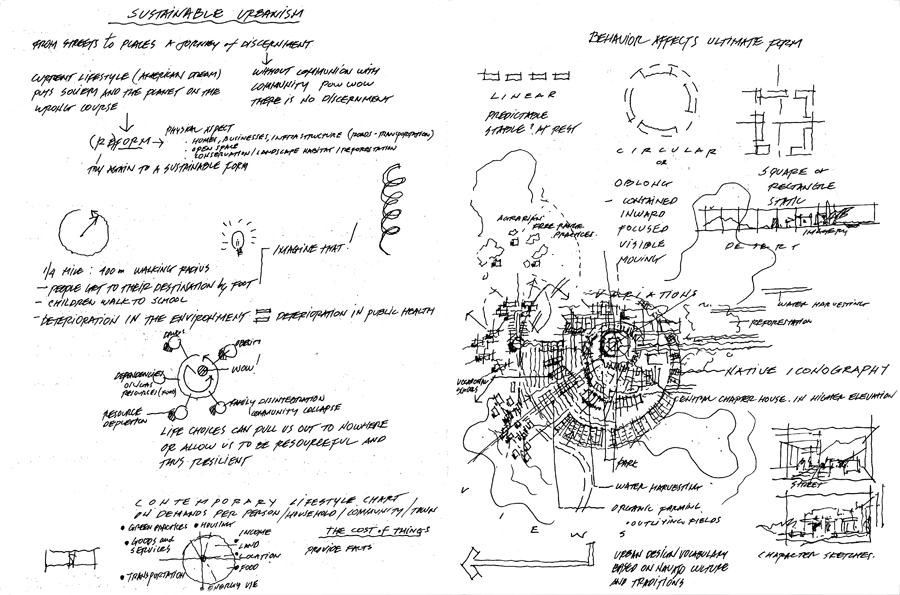 SUSTAINABLE URBANISM
FROM STREETS to PLACES A JOURNEY of DISCERNMENT
CURRENT LIFESTYLE (AMERICAN DREAM)
PUTS SOCIETY AND THE PLANET ON THE
WRONG COURSE
WITHOUT COMMUNION WITH
COMMUNITY POW WOW
THERE IS NO DISCERNMENT
(RE)FORM
PHYSICAL ASPECT
• HOMES, BUSINESSES, INFRASTRUCTURE (ROADS - TRANSPORTATION)
• OPEN SPACE
• CONSERVATION / LANDSCAPE HABITAT / REFORESTATION
TRY AGAIN TO A SUSTAINABLE FORM
IMAGINE THAT!
1/4 MILE : 400 m WALKING RADIUS
- PEOPLE GET TO THEIR DESTINATION by FOOT
- CHILDREN WALK TO SCHOOL
- DETERIORATION IN THE ENVIRONMENT = DETERIORATION IN PUBLIC HEALTH
WOW!
DEPENDENCIES
RESOURCE
DEPLETION
FAMILY DISINTEGRATION
COMMUNITY COLLAPSE
LIFE CHOICES CAN PULL US OUT TO NOWHERE
OR ALLOW US TO BE RESOURCEFUL AND
THUS RESILIENT
CONTEMPORARY LIFESTYLE CHART
ON DEMANDS PER PERSON / HOUSEHOLD / COMMUNITY / TOWN
• GREEN PRACTICES
• HOUSING
• GOODS AND
SERVICES
• TRANSPORTATION
• INCOME
• LAND
• LOCATION
• FOOD
• ENERGY USE
THE COST of THINGS
PROVIDE FACTS
BEHAVIOR AFFECTS ULTIMATE FORM
LINEAR
PREDICTABLE
STABLE AT REST
CIRCULAR
OR
OBLONG
- CONTAINED
INWARD
FOCUSED
VISIBLE
MOVING
SQUARE or
RECTANGLE
STATIC
IMAGERY
DESERT
AGRARIAN
FREE RANGE
PRACTICES
VARIATIONS
WATER HARVESTING
REFORESTATION
NATIVE ICONOGRAPHY
CENTRAL CHAPTER HOUSE. IN HIGHER ELEVATION
PARK
WATER HARVESTING
ORGANIC FARMING
• OUTLYING FIELDS
VIEWS
STREET
CHARACTER SKETCHES.
URBAN DESIGN VOCABULARY
BASED ON NAVAJO CULTURE
AND TRADITIONS